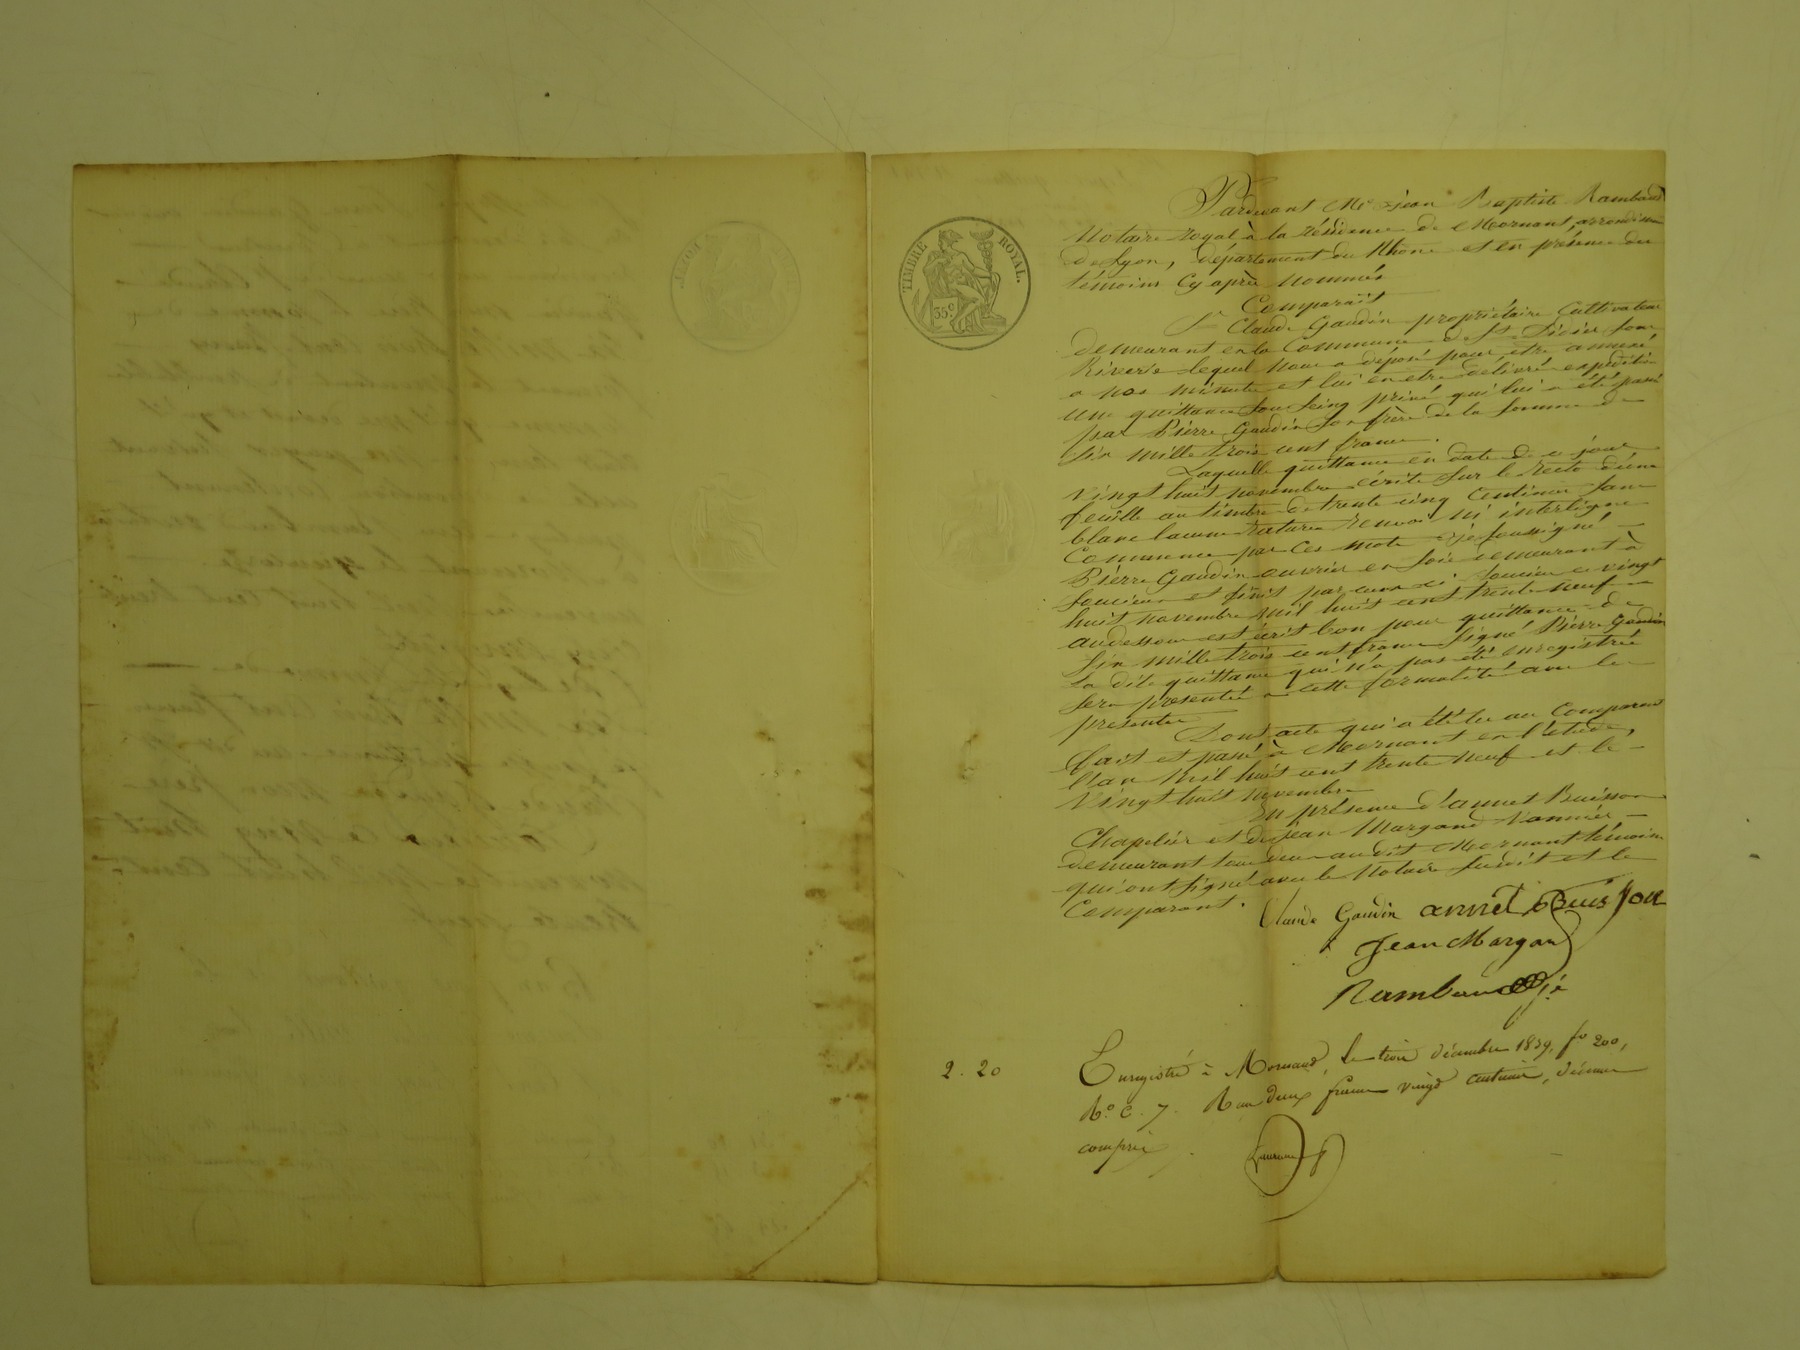 TIMBRE ROYAL.
35 c.
Pardevant Me jean Baptiste Rambaud
Notaire royal à la résidence de Mornant, arrondissem
de Lyon, département du Rhône et en présence des
témoins Cy après nommés
Comparait
Sr Claude Gaudin propriétaire Cultivateur
demeurant en la Commune de St Didier sous
Riverie lequel nous a déposé pour être annexé
a nos minutes et lui en etre délivré expédition
une quittance sous seing privé qui lui a été passé
par Pierre Gaudin son frère de la somme de
six mille trois cent francs.
Laquelle quittance en date de ce jour
vingt huit novembre écrite sur le recto d'une
feuille au timbre de trente cinq Centimes sans
blanc lacune rature renvoi ni interligne
Commence par ces mots je soussigné
Pierre Gaudin ouvrier en soie demeurant à
soucieux et finit par ceux ci soucieu ce vingt
huit novembre mil huit cent trente neuf
au dessous est écrit bon pour quittance de
six mille trois cent francs signé Pierre Gaudin
La dite quittance qui n'a pas été enregistrée
sera présentée a cette formalité avec les
présentes
Dont acte qui a été lu au Comparant
fait et passé à Mornant en l'étude,
l'an mil huit cent trente neuf et le
vingt huit novembre
En présence d'annet Buisson
Chapelier et de jean Margand Vannier
demeurant tous deux audit Mornant témoins
qui ont signé avec le Notaire susdit et le
Comparant.
Claude Gaudin annet Buisson
Jean Margand
Rambaud
2. 20
Enregistré à Mornant, le trois décembre 1839, fo 200,
Ro C. 7. Reçu deux francs vingt centimes, décime
compris